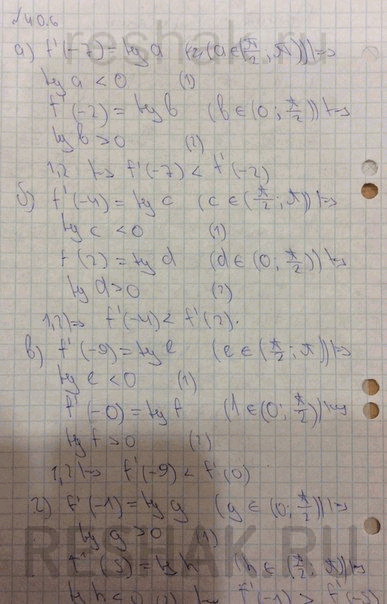 №40.6
а) f'(-7) = tg a (a ∈ (π/2; π)) |⇒
tg a < 0 (1)
f'(-2) = tg b (b ∈ (0; π/2)) |⇒
tg b > 0 (2)
1,2 |⇒ f'(-7) < f'(-2)
б) f'(-4) = tg c (c ∈ (π/2; π)) |⇒
tg c < 0 (1)
f'(2) = tg d (d ∈ (0; π/2)) |⇒
tg d > 0 (2)
1,2 |⇒ f'(-4) < f'(2).
в) f'(-9) = tg e (e ∈ (π/2; π)) |⇒
tg e < 0 (1)
f'(-0) = tg f (f ∈ (0; π/2)) |⇒
tg f > 0 (2)
1,2 |⇒ f'(-9) < f'(0)
г) f'(-1) = tg g (g ∈ (0; π/2)) |⇒
tg g > 0 (1)
RESHAK.RU
tg h (h ∈ (π/2; π)) |⇒
tg h < 0 (2) f'(-1) >